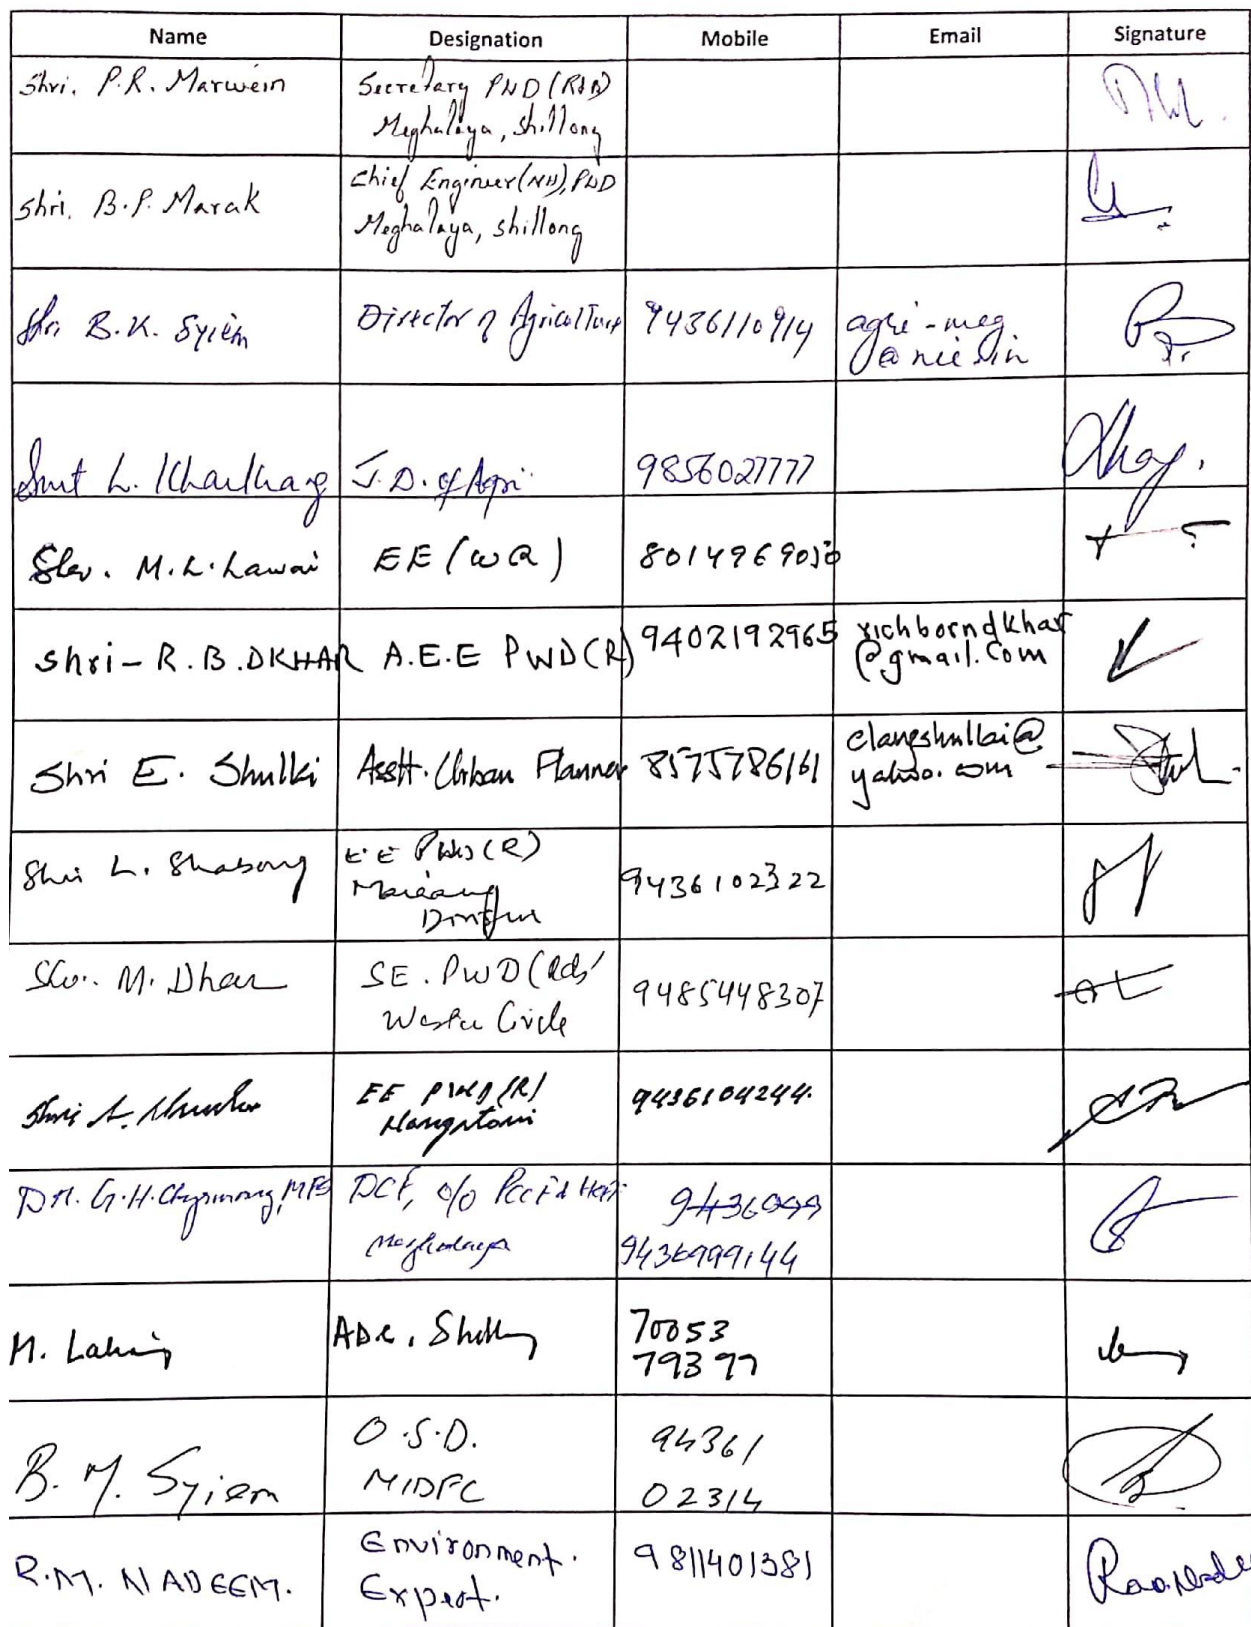 Name Designation Mobile Email Signature
Shri. P.R. Marwein Secretary PWD (R&B)
Meghalaya, Shillong
Shri. B.P. Marak Chief Engineer (NH), PWD
Meghalaya, Shillong
Shri B.K. Syiem Director of Agriculture 9436110914 agri-meg
@nic.in
Smt L. Kharlkhang J.D. of Agri. 9856027777
M.L. Lawai EE (WR) 8014969030
Shri - R.B. DKHAR A.E.E PWD(R) 9402192965 richborndkhar
@gmail.com
Shri E. Shullki Asstt. Urban Planner 8575786161 elangshullai@
yahoo.com
Shri L. Shabong EE PWD (R) 9436102322
Mairang
Division
M. Dhar SE. PWD (Rds) 9485448307
Western Circle
Shri A. EE PWD (R) 9436104244.
Nongstoin
DR. G.H. MFS DCF, o/o PCCF & HoFF
Meghalaya 9436999144
M. ADC, Shillong 70053
B. M. Syiem O.S.D. 94361
MIDFC 02314
R.M. NADEEM. Environment. 9811401381
Expert.